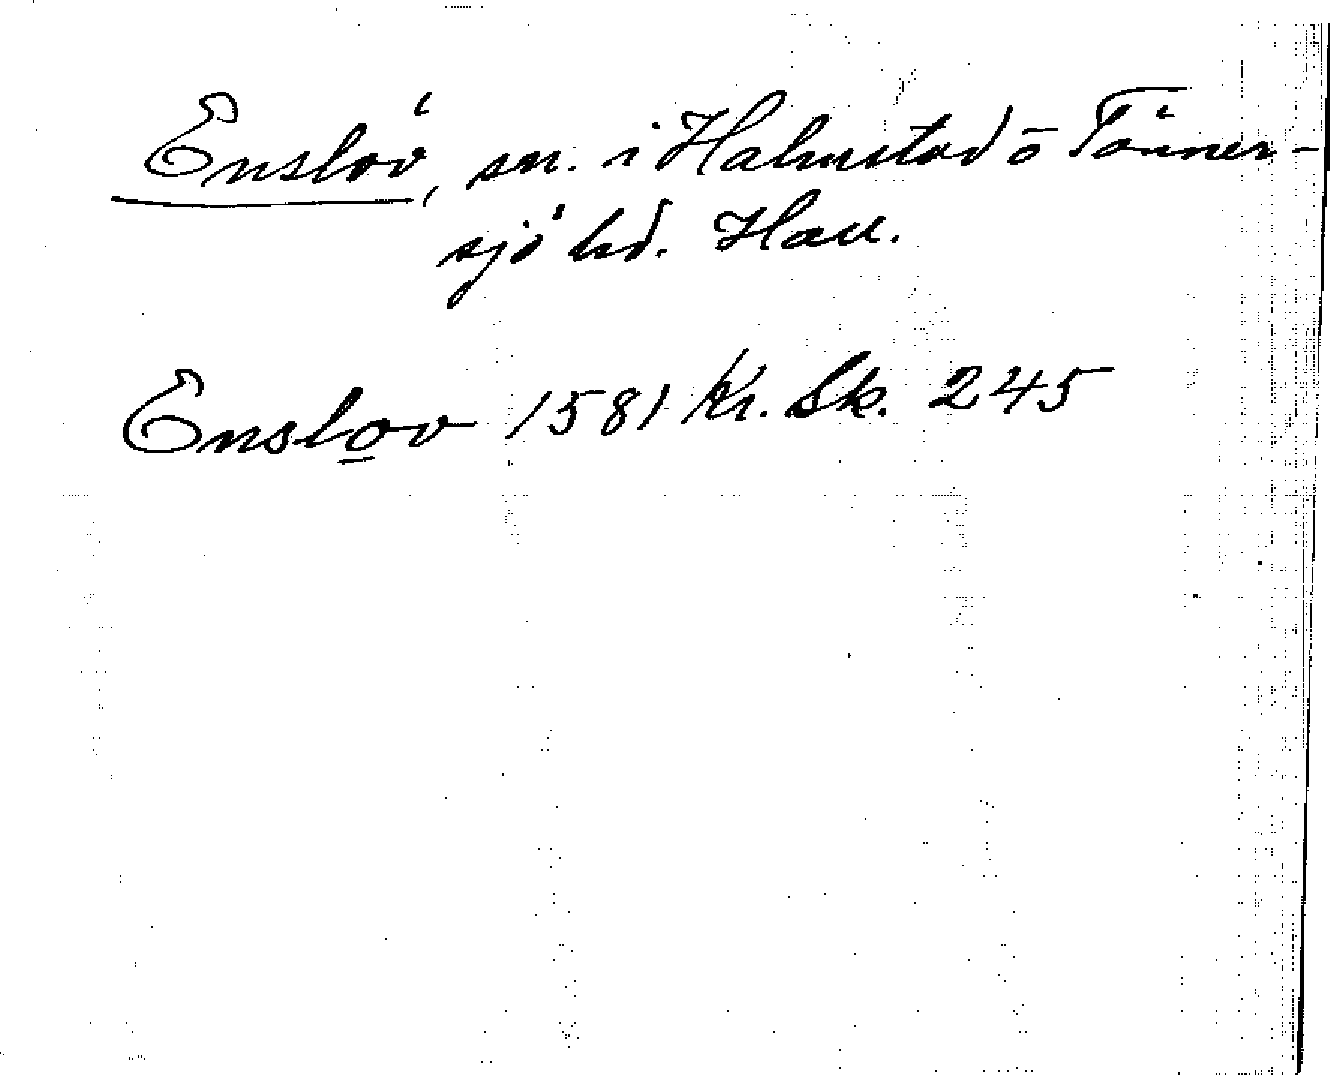 Enslöv, sn. i Halmstad o Tönner-
sjö hd. Hall.
Enslov 1581 Kr. Sk. 245